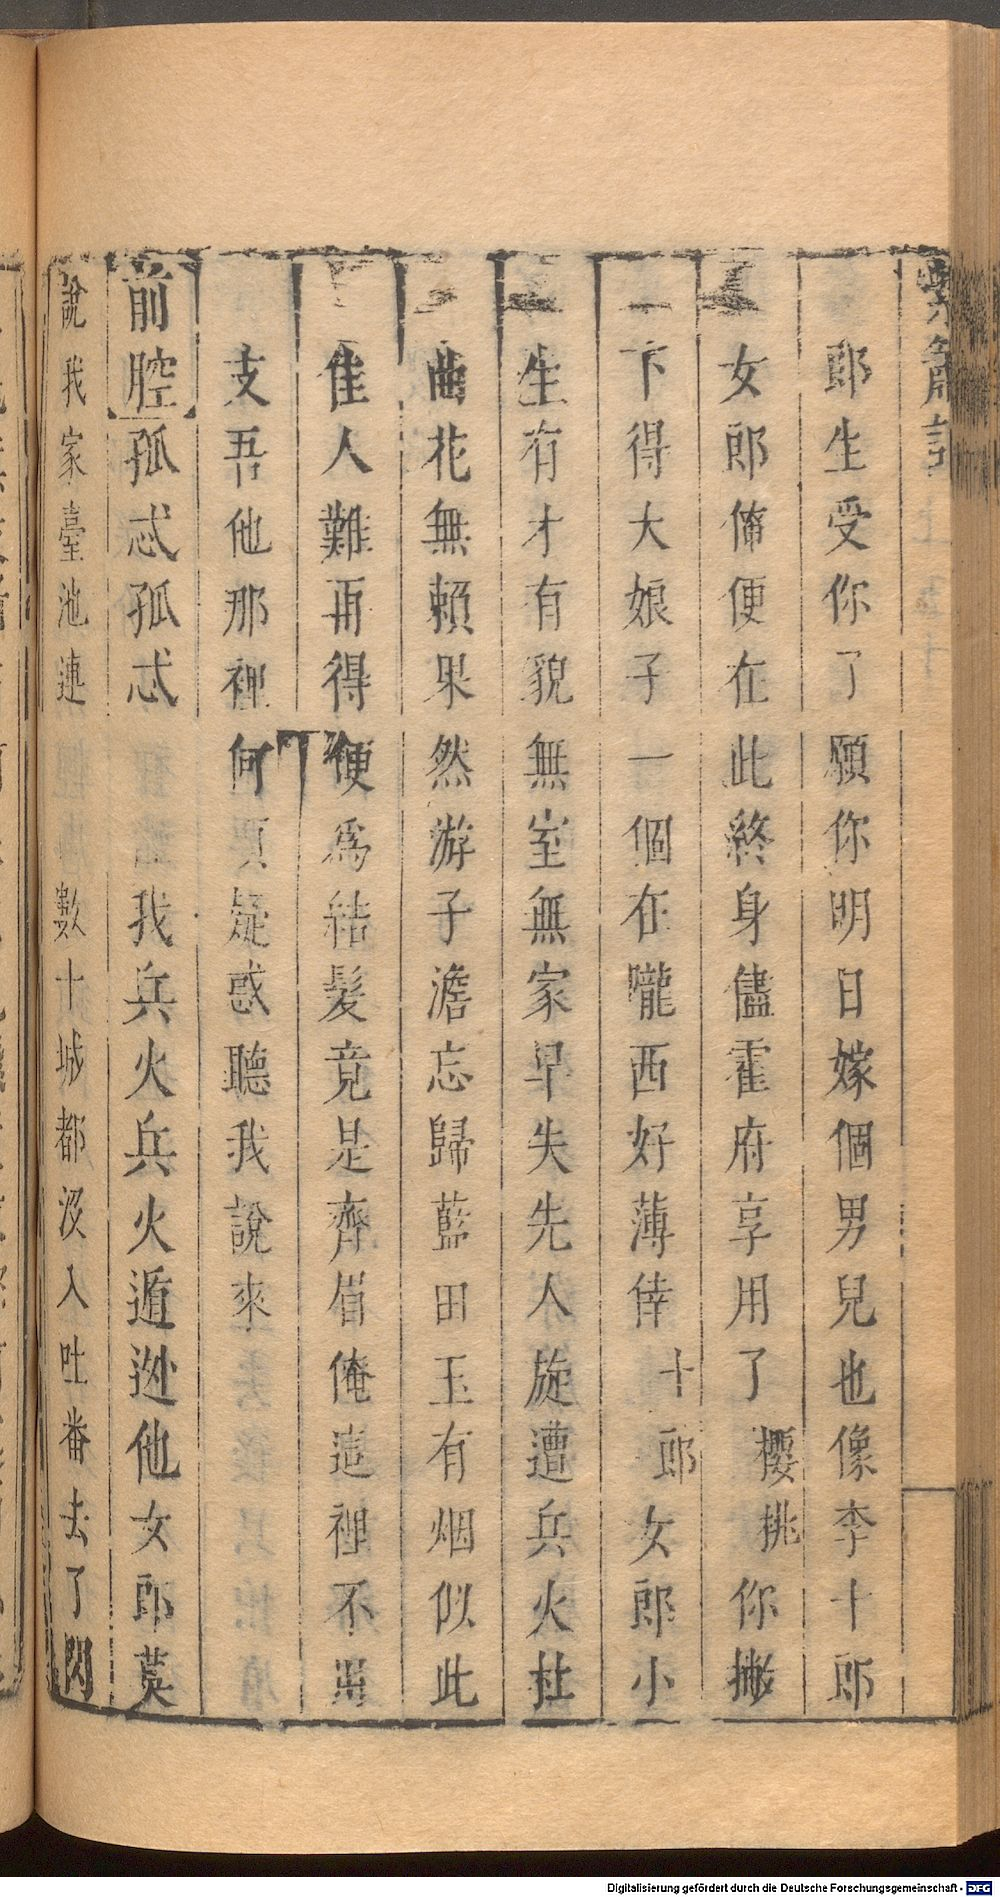 紫簫記
郎生受你了願你明日嫁個男兒也像李十郎
女郎俺便在此終身儘霍府享用了櫻桃你撇
下得大娘子一個在嚨西好薄倖十郎女郎小
生有才有貌無室無家早失先人旋遭兵火杜
曲花無賴果然游子澹忘歸藍田玉有烟似此
佳人難再得便爲結髮竟是齊眉俺這裡不畱
支吾他那裡何須疑惑聽我說來
前腔孤忒孤忒我兵火兵火遁逊他女郎莫
說我家臺池連數十城都沒入吐番去了閃
Digitalisierung gefördert durch die Deutsche Forschungsgemeinschaft - DFG